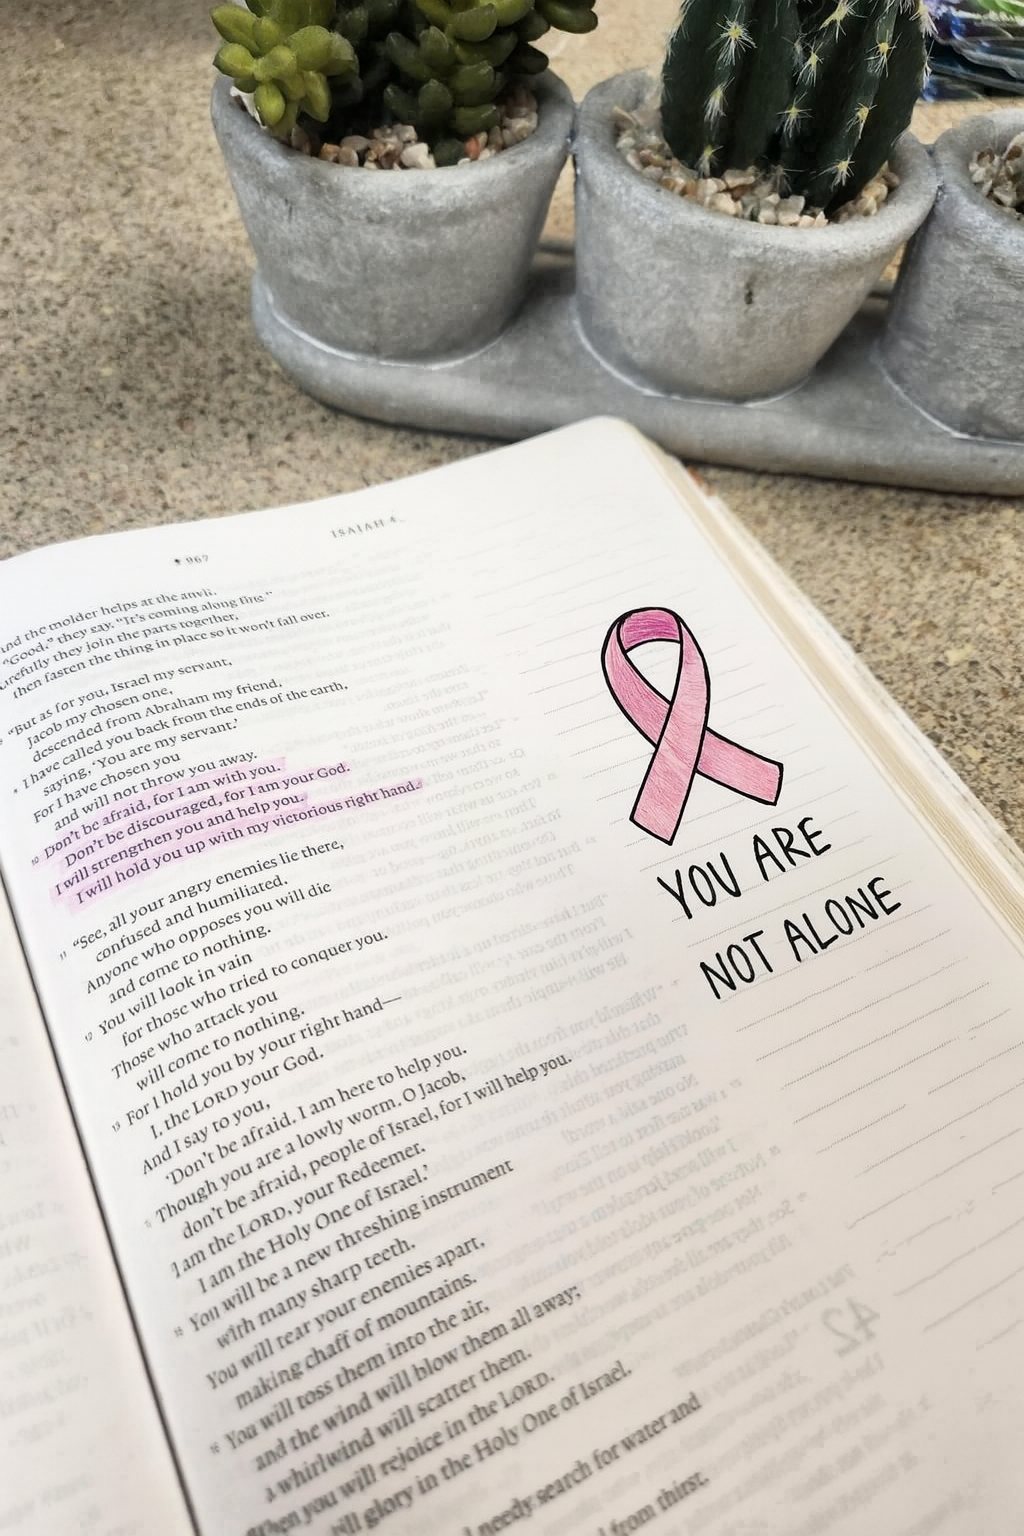 967
ISAIAH 4
and the molder helps at the anvil.
"Good," they say. "It's coming along fine."
Carefully they join the parts together,
then fasten the thing in place so it won't fall over.
"But as for you, Israel my servant,
Jacob my chosen one,
descended from Abraham my friend,
9 I have called you back from the ends of the earth,
saying, 'You are my servant.'
For I have chosen you
and will not throw you away.
10 Don't be afraid, for I am with you.
Don't be discouraged, for I am your God.
I will strengthen you and help you.
I will hold you up with my victorious right hand.
11 "See, all your angry enemies lie there,
confused and humiliated.
Anyone who opposes you will die
and come to nothing.
12 You will look in vain
for those who tried to conquer you.
Those who attack you
will come to nothing.
13 For I hold you by your right hand—
I, the LORD your God.
And I say to you,
'Don't be afraid. I am here to help you.
Though you are a lowly worm, O Jacob,
don't be afraid, people of Israel, for I will help you.
I am the LORD, your Redeemer.
I am the Holy One of Israel.'
You will be a new threshing instrument
with many sharp teeth.
You will tear your enemies apart,
making chaff of mountains.
16 You will toss them into the air,
and the wind will blow them all away;
a whirlwind will scatter them.
Then you will rejoice in the LORD.
will glory in the Holy One of Israel.
needy search for water and
from thirst.
YOU ARE
NOT ALONE